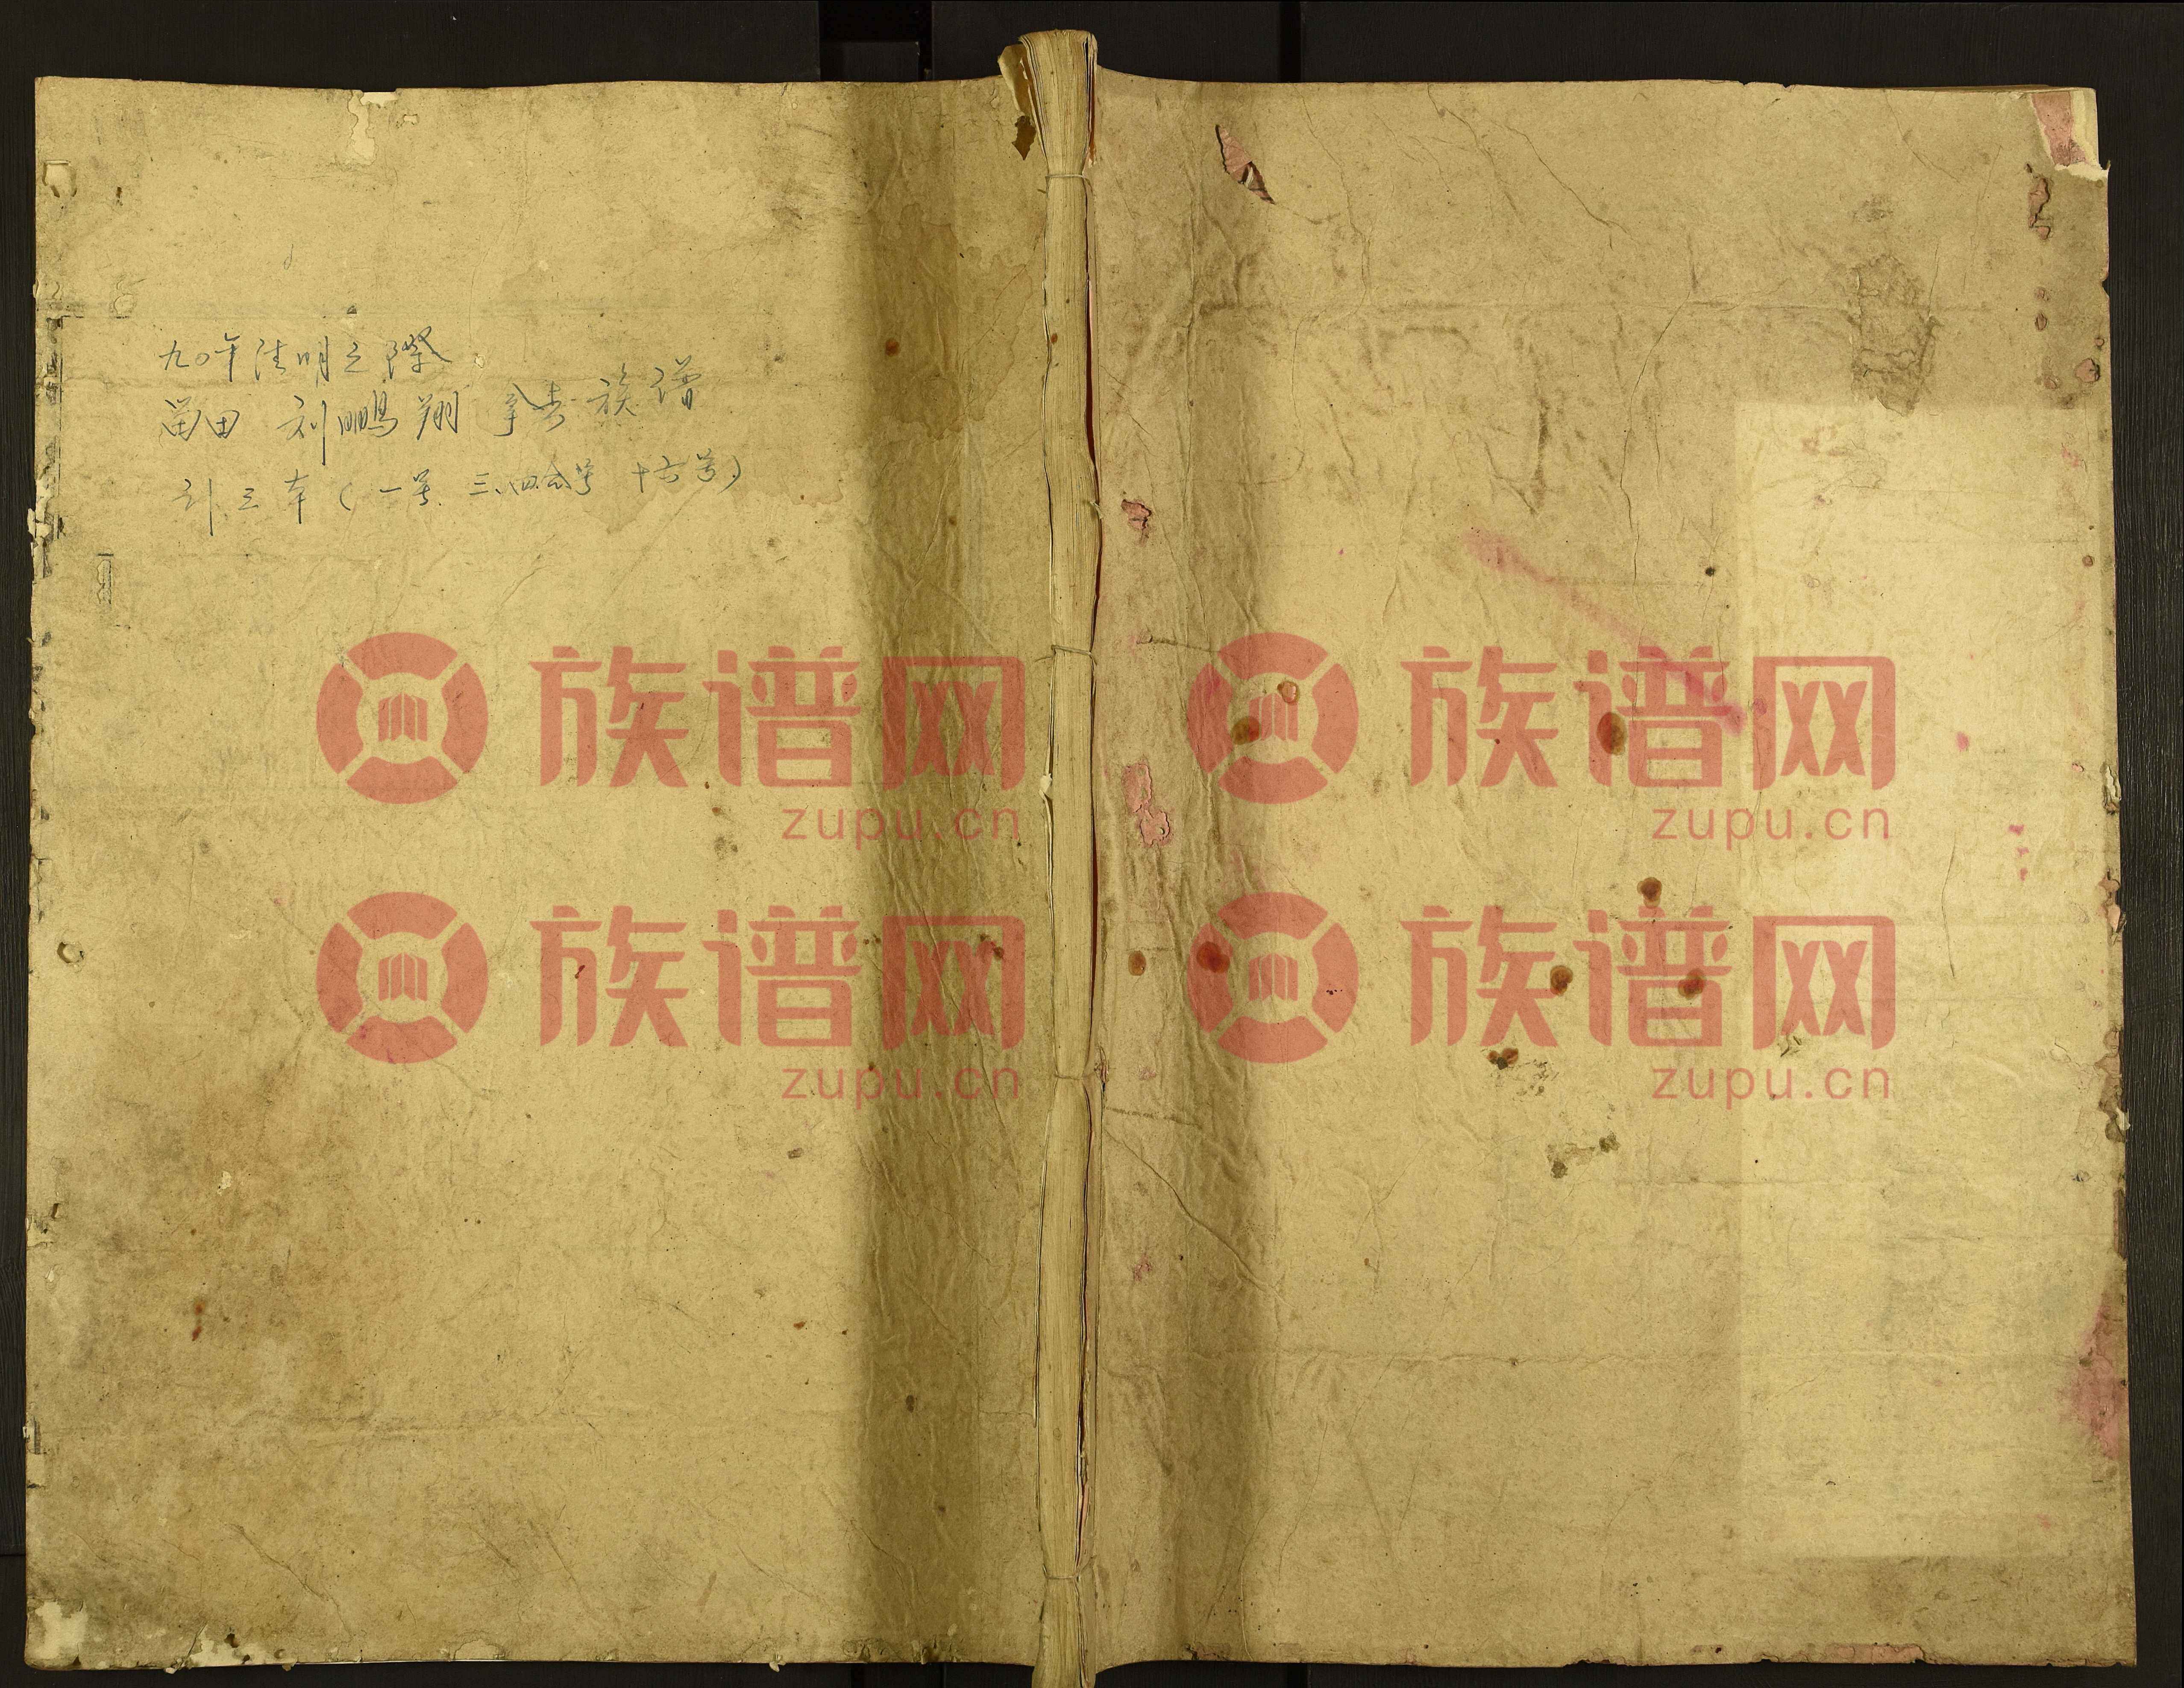 九〇年清明之際
苗田 刘鵬翔 拿去族譜
計三本（一号、三、四合号 十六号）
族谱网
zupu.cn
族谱网
zupu.cn
族谱网
zupu.cn
族谱网
zupu.cn